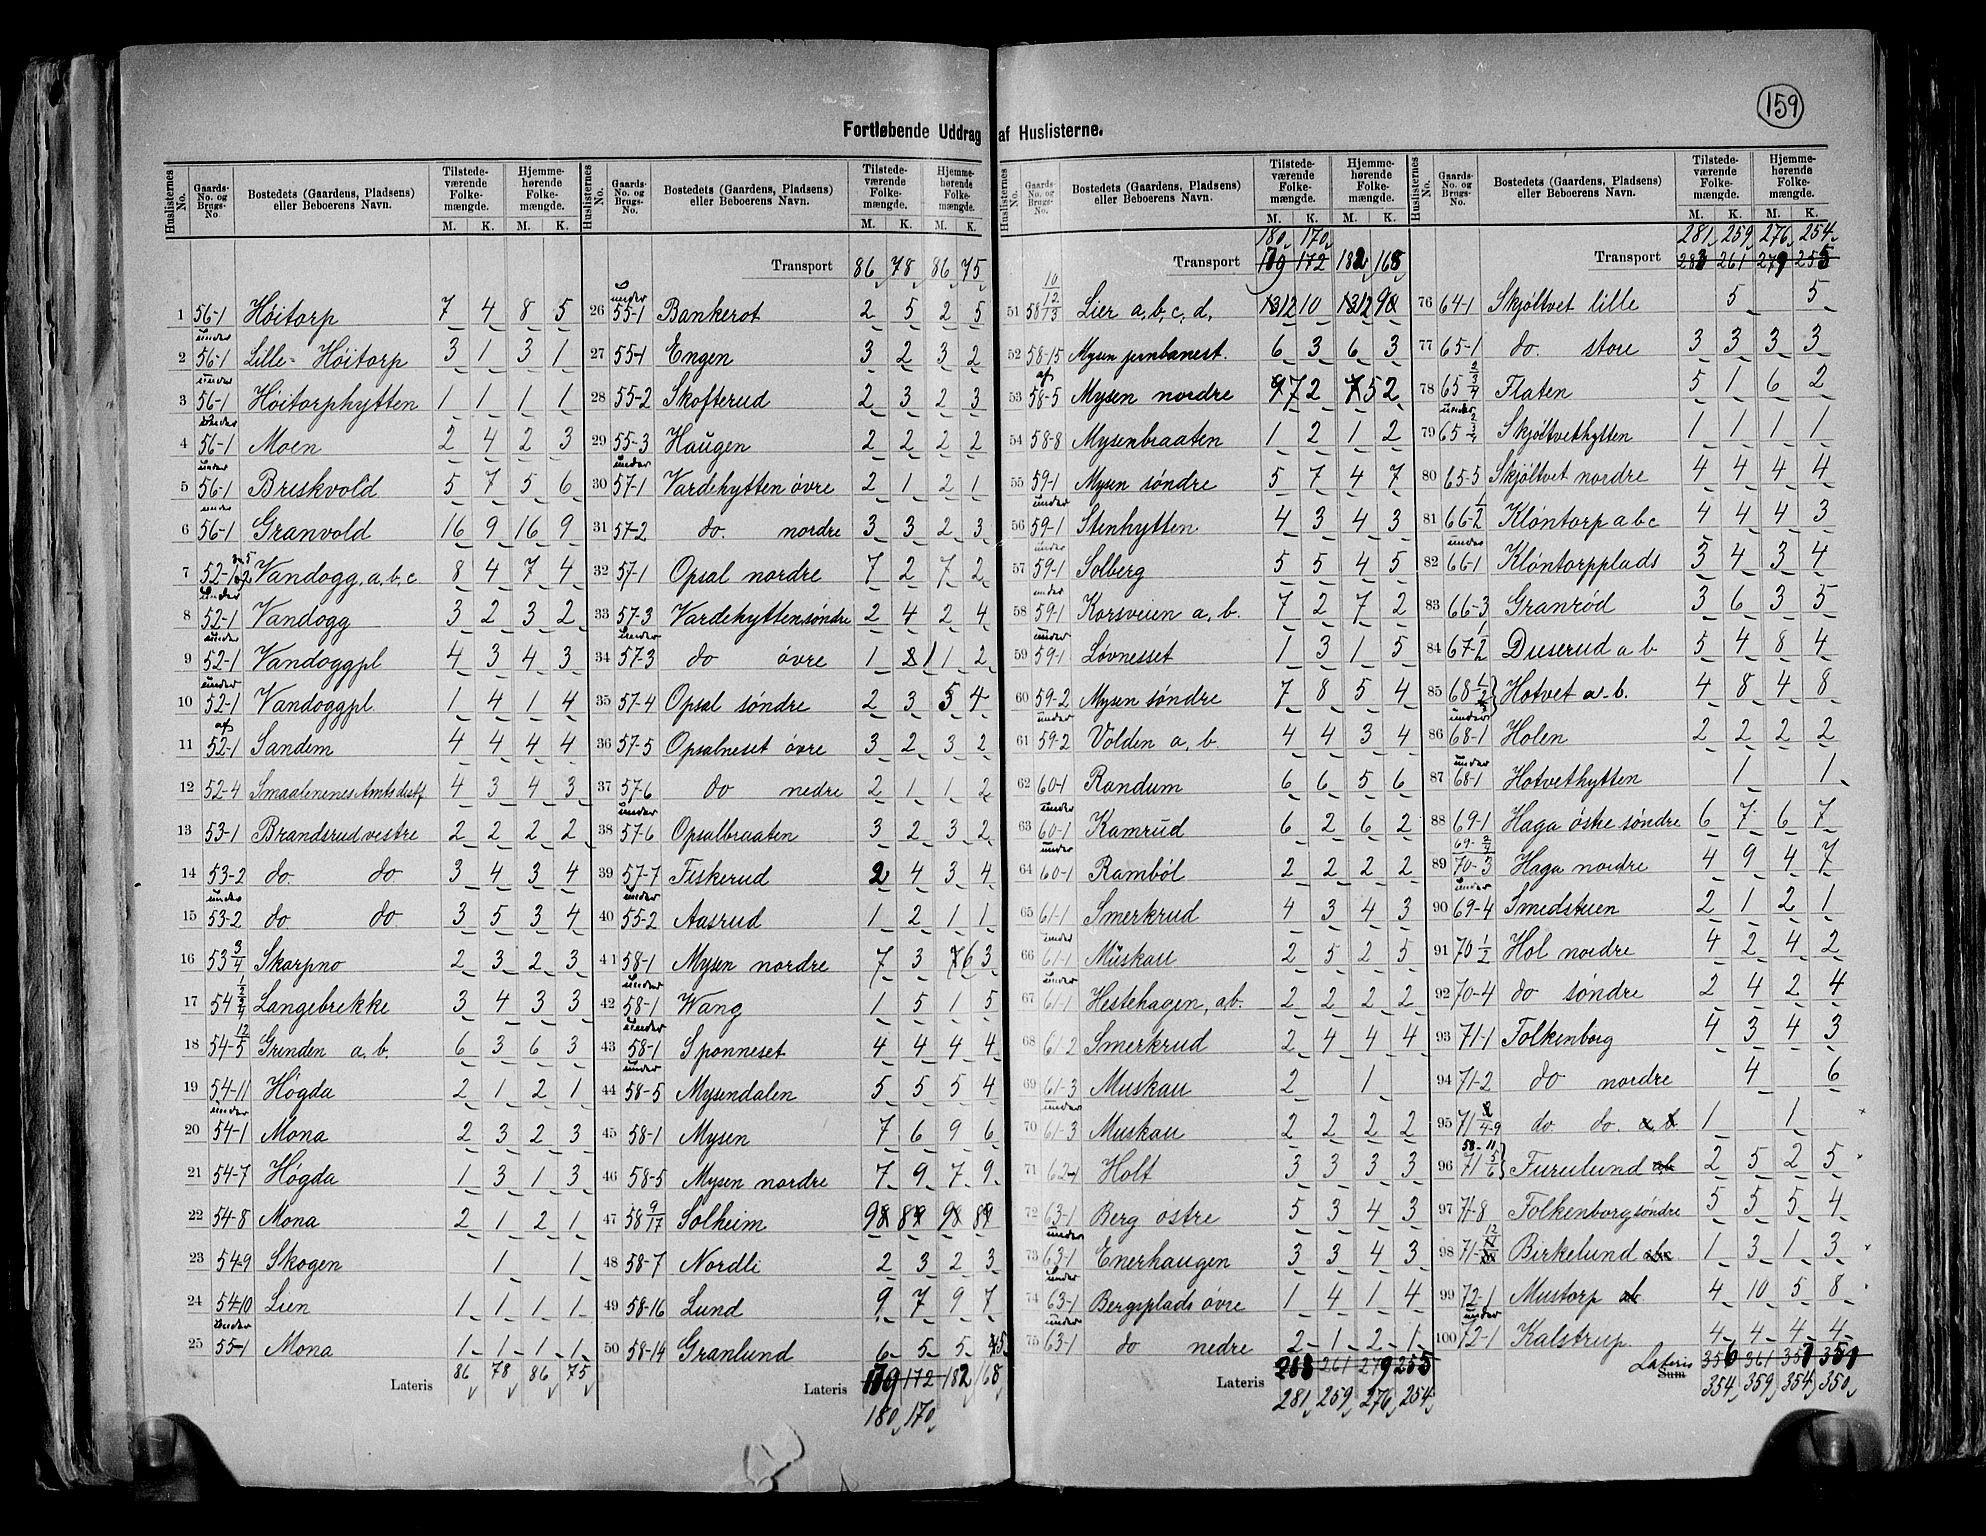 159
Fortløbende Uddrag af Huslisterne.
Huslisternes No. | Gaards-No. og Brugs-No. | Bostedets (Gaardens, Pladsens) eller Beboerens Navn. | Tilstedeværende Folkemængde. M. K. | Hjemmehørende Folkemængde. M. K.
1 56-1 Høitorp 7 4 8 5
2 under 56-1 Lille-Høitorp 3 1 3 1
3 under 56-1 Høitorphytten 1 1 1 1
4 under 56-1 Moen 2 4 2 3
5 under 56-1 Briskvold 5 7 5 6
6 under 56-1 Granvold 16 9 16 9
7 52-1 Vandogg, a, b, c 8 4 7 4
8 under 52-1 Vandogg 3 2 3 2
9 under 52-1 Vandoggpl 4 3 4 3
10 under 52-1 Vandoggpl 1 4 1 4
11 af 52-1 Sandem 4 4 4 4
12 52-4 Smaalenenes Amts distf 4 3 4 3
13 53-1 Brandsrud vestre 2 2 2 2
14 53-2 do. do 3 4 3 4
15 under 53-2 do do 3 5 3 4
16 53 3/4 Skarpno 2 3 2 3
17 54 Langebrekke 3 4 3 3
18 54-5 12 Grinden a, b. 6 3 6 3
19 54-11 Høgda 2 1 2 1
20 under 54-1 Mona 2 3 2 3
21 54-7 Høgda 1 3 1 3
22 54-8 Mona 2 1 2 1
23 54-9 Skogen 1 1
24 54-10 Lien 1 1 1 1
25 under 55-1 Mona 1 1 1 1
Lateris 86 78 86 75
Huslisternes No. | Gaards-No. og Brugs-No. | Bostedets (Gaardens, Pladsens) eller Beboerens Navn. | Tilstedeværende Folkemængde. M. K. | Hjemmehørende Folkemængde. M. K.
Transport 86 78 86 75
26 under 55-1 Bankerot 2 5 2 5
27 55-1 Engen 3 2 3 2
28 55-2 Skofterud 2 3 2 3
29 55-3 Haugen 2 2 2 2
30 under 57-1 Vardehytten øvre 2 1 2 1
31 57-2 do. nordre 3 3 2 3
32 57-1 Opsal nordre 7 2 7 2
33 57-3 Vardehytten søndre 2 4 2 4
34 under 57-3 do øvre 1 1 1 2
35 57-4 Opsal søndre 2 3 5 4
36 57-5 Opsalneset øvre 3 2 3 2
37 57-6 do nedre 2 1 1 2
38 under 57-6 Opsalbraaten 3 2 3 2
39 57-7 Fiskerud 2 4 3 4
40 under 55-2 Aasrud 1 2 1 1
41 58-1 Mysen nordre 7 3 6 3
42 under 58-1 Wang 1 5 1 5
43 under 58-1 Sponneset 4 4 4 4
44 under 58-5 Mysendalen 5 5 5 4
45 58-1 Mysen 7 6 9 6
46 58-5 Mysen nordre 7 9 7 9
47 58 9/17 Solheim 9 8 9 8
48 58-7 Nordli 2 3 2 3
49 58-16 Lund 9 7 9 7
50 58-14 Granlund 6 5 5 5
Lateris 179 172 182 168
180 170
Huslisternes No. | Gaards-No. og Brugs-No. | Bostedets (Gaardens, Pladsens) eller Beboerens Navn. | Tilstedeværende Folkemængde. M. K. | Hjemmehørende Folkemængde. M. K.
180 170
Transport 179 172 182 168
51 58 10 12/13 Lier a, b, c, d, 12 10 12 9
52 58-15 Mysen jernbanest. 6 3 6 3
53 af 58-5 Mysen nordre 7 2 5 2
54 58-8 Mysenbraaten 1 2 1 2
55 59-1 Mysen søndre 5 7 4 7
56 under 59-1 Stenhytten 4 3 4 3
57 under 59-1 Solberg 5 5 4 5
58 under 59-1 Korsveien a, b. 7 2 7 2
59 under 59-1 Løvnesset 1 3 1 5
60 59-2 Mysen søndre 7 8 5 4
61 under 59-2 Volden a, b. 4 4 3 4
62 60-1 Randum 6 6 5 6
63 under 60-1 Kamrud 6 2 6 2
64 under 60-1 Rambøl 2 2 2 2
65 61-1 Smerkrud 4 3 4 3
66 under 61-1 Muskau 2 5 2 5
67 under 61-1 Hestehagen, ab. 2 2 2 2
68 61-2 Smerkrud 2 4 4 4
69 61-3 Muskau 2 1
70 under 61-3 Muskau 2 2 2 2
71 62-1 Holt 3 3 3 3
72 63-1 Berg østre 5 3 4 3
73 under 63-1 Enerhaugen 3 3 4 3
74 under 63-1 Bergsplads øvre 1 4 1 4
75 under 63-1 do nedre 2 1 2 1
Lateris 283 261 279 255
281 259 276 254
Huslisternes No. | Gaards-No. og Brugs-No. | Bostedets (Gaardens, Pladsens) eller Beboerens Navn. | Tilstedeværende Folkemængde. M. K. | Hjemmehørende Folkemængde. M. K.
281 259 276 254
Transport 283 261 279 255
76 64-1 Skjøltvet lille 5 5
77 65-1 do. store 3 3 3 3
78 65 2 3/4 Flaten 5 1 6 2
79 under 65 2 3/4 Skjøltvethytten 1 1 1 1
80 65-5 Skjøltvet nordre 4 4 4 4
81 66-1/2 Kløntorp a b c 4 4 4 3
82 under 66-1 Kløntorpplads 3 4 3 4
83 66-3 Granrød 3 6 3 5
84 67-1/2 Duserud a b 5 4 8 4
85 68-1/2 Hotvet a-b. 4 8 4 8
86 under 68-1 Holen 2 2 2 2
87 under 68-1 Hotvethytten 1 1
88 69-1 Haga østre søndre 6 7 6 7
89 69- 2/3 70-3 Haga nordre 4 9 4 7
90 under 69-4 Smedstuen 2 1 2 1
91 70 1/2 Hol nordre 4 2 4 2
92 70-4 do søndre 2 4 2 4
93 71-1 Folkenborg 4 3 4 3
94 71-2 do nordre 4 6
95 71 4-9 do do. a, b. 1 1
96 58-11 71 5/6 Furulund ab 2 5 2 5
97 71-8 Folkenborg søndre 5 5 5 4
98 71- 12 Birkelund ab 1 3 1 3
99 72-1 Mustorp ab 4 10 5 8
100 under 72-1 Kalstrup 4 4 4 4
Lateris Sum 356 361 357 351
354 359 354 350